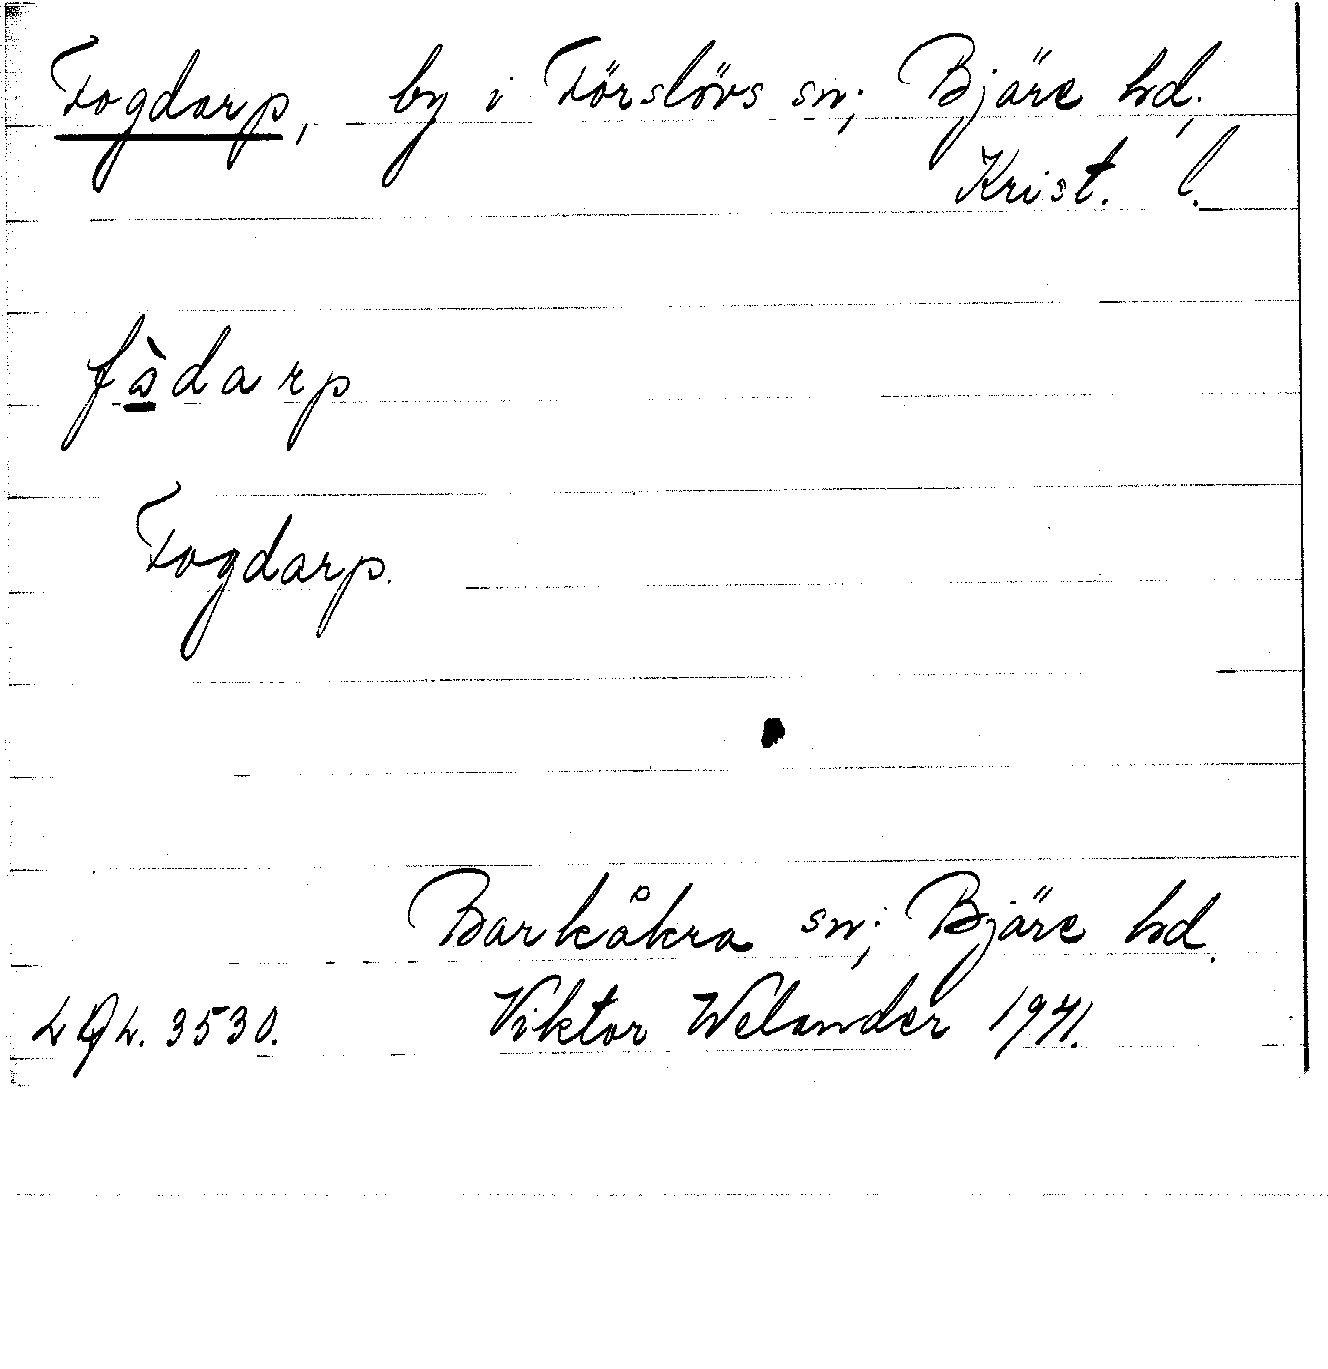 Fogdarp, by i Förslövs sn; Bjäre hd,
Krist. l.
fàdarp
Fogdarp.
Barkåkra sn; Bjäre hd.
LAL. 3530. Viktor Welander 1941.